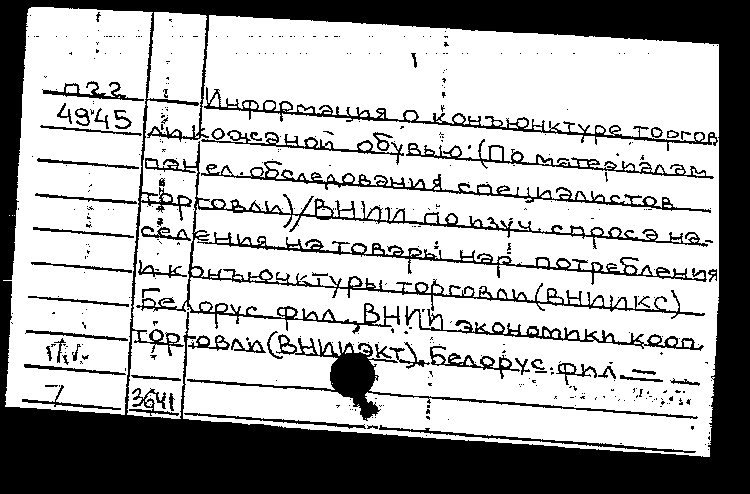 п22
4945
Информация о конъюнктуре торгов
ли кожаной обувью: (По материалам
панел. обследования специалистов
торговли)/ВНИИ по изуч. спроса на-
селения на товары нар. потребления
и конъюнктуры торговли (ВНИИКС)
Белорус. фил., ВНИИ экономики кооп.
торговли (ВНИИЭКТ), Белорус. фил. —
7
3641